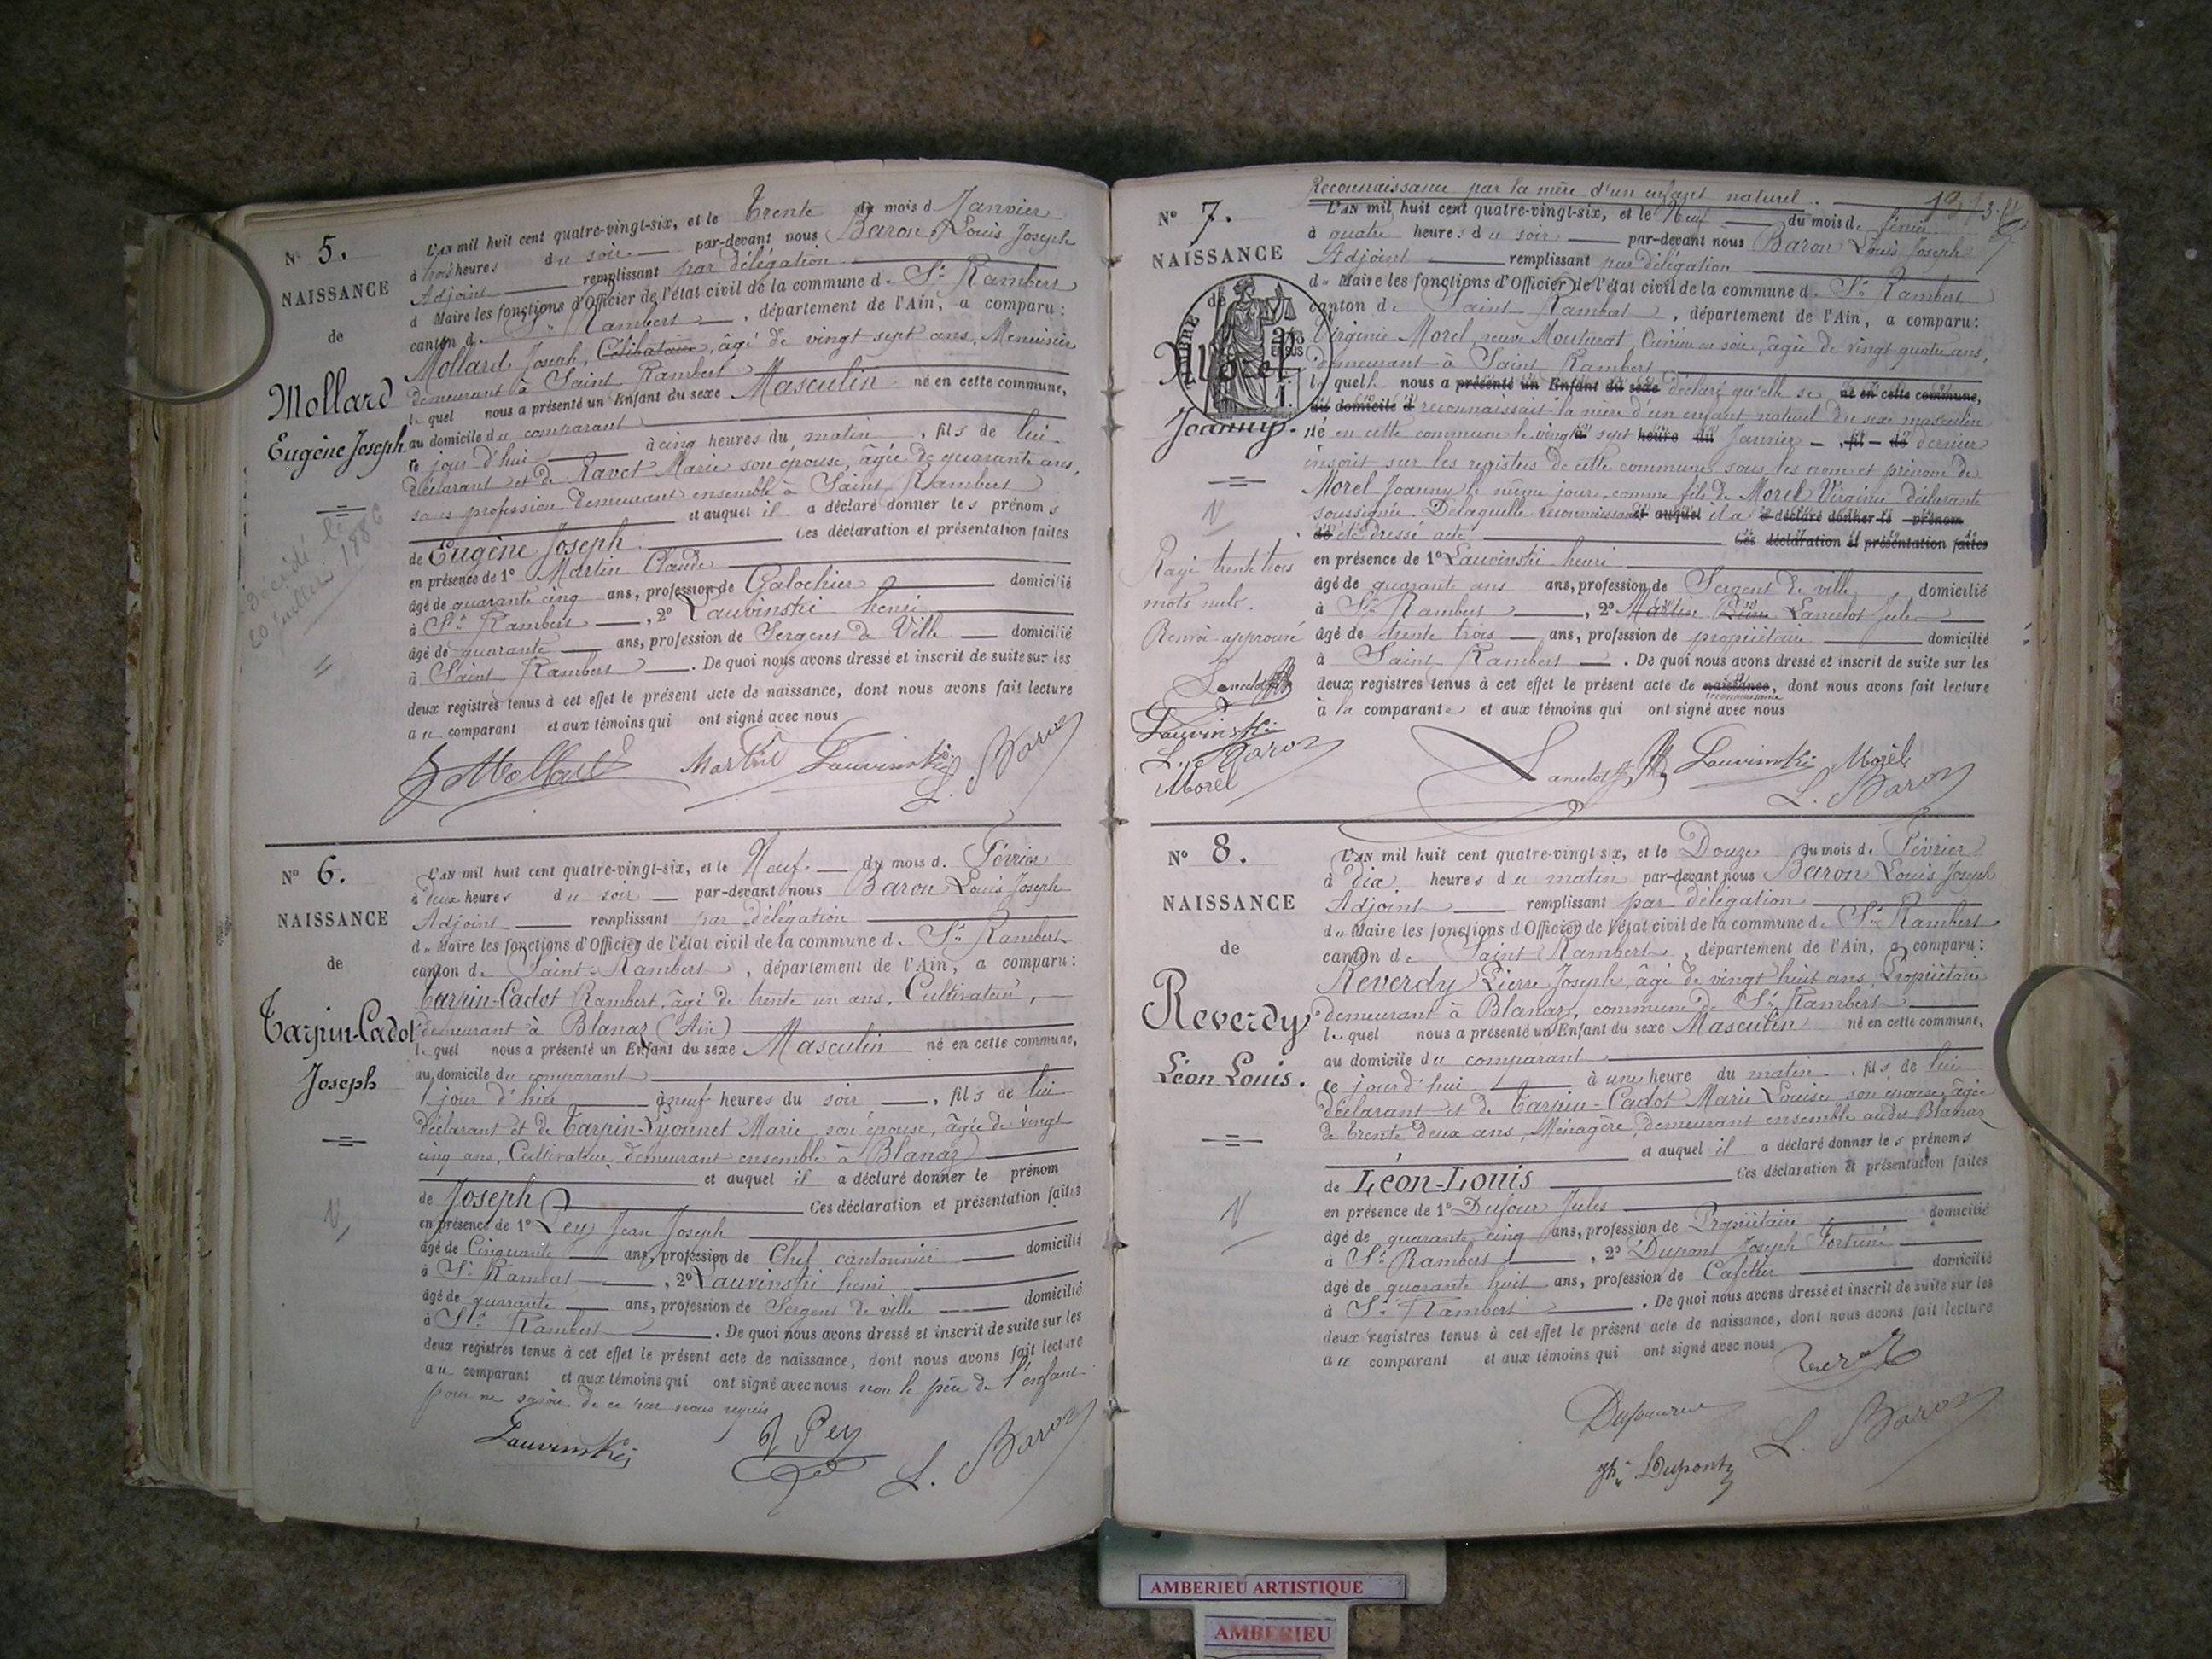 N° 5.
NAISSANCE
de
Mollard
Eugène Joseph
Décédé le
20 Juillet 1886
L'AN mil huit cent quatre-vingt-six, et le Trente du mois d Janvier
à trois heures du soir par-devant nous Baron Louis Joseph
Adjoint remplissant par délégation
d Maire les fonctions d'Officier de l'état civil de la commune d. St Rambert
canton d. St Rambert, département de l'Ain, a comparu:
Mollard Joseph, Célibataire, âgé de vingt sept ans, Menuisier
demeurant à Saint Rambert
lequel nous a présenté un Enfant du sexe Masculin né en cette commune,
au domicile du comparant
ce jour d'hui à cinq heures du matin, fils de lui
déclarant et de Ravet Marie son épouse, âgée de quarante ans,
sans profession demeurant ensemble à Saint Rambert
et auquel il a déclaré donner les prénoms
de Eugène Joseph. Ces déclaration et présentation faites
en présence de 1° Martin Claude
âgé de quarante cinq ans, profession de Galochier domicilié
à St Rambert, 2° Lauvinski henri
âgé de quarante ans, profession de Sergent de Ville domicilié
à Saint Rambert. De quoi nous avons dressé et inscrit de suite sur les
deux registres tenus à cet effet le présent acte de naissance, dont nous avons fait lecture
au comparant et aux témoins qui ont signé avec nous
Mollard Martin Lauvinski L. Baron
N° 6.
NAISSANCE
de
Tarpin-Cadot
Joseph
L'AN mil huit cent quatre-vingt-six, et le Neuf du mois d. Février
à deux heures du soir par-devant nous Baron Louis Joseph
Adjoint remplissant par délégation
du Maire les fonctions d'Officier de l'état civil de la commune d. St Rambert
canton d. Saint-Rambert, département de l'Ain, a comparu:
Tarpin-Cadot Rambert, âgé de trente un ans, Cultivateur,
demeurant à Blanaz (Ain)
lequel nous a présenté un Enfant du sexe Masculin né en cette commune,
au domicile du comparant
jour d'hier à neuf heures du soir, fils de lui
déclarant et de Tarpin-Lyonnet Marie son épouse, âgée de vingt
cinq ans, Cultivateur, demeurant ensemble à Blanaz
et auquel il a déclaré donner le prénom
de Joseph Ces déclaration et présentation faites
en présence de 1° Pey Jean Joseph
âgé de Cinquante ans, profession de Chef cantonnier domicilié
à St Rambert, 2° Lauvinski henri
âgé de quarante ans, profession de Sergent de ville domicilié
à St Rambert. De quoi nous avons dressé et inscrit de suite sur les
deux registres tenus à cet effet le présent acte de naissance, dont nous avons fait lecture
au comparant et aux témoins qui ont signé avec nous non le père de l'enfant
pour ne savoir de ce par nous requis
Lauvinski J Pey L. Baron
Reconnaissance par la mère d'un enfant naturel.
N° 7.
NAISSANCE
de
Morel
Joanny.
Rayé trente trois
mots nuls.
Renvoi approuvé
Lancelot
Lauvinski
L. Baron
Morel
L'AN mil huit cent quatre-vingt-six, et le Neuf du mois d. février
à quatre heures du soir par-devant nous Baron Louis Joseph
Adjoint remplissant par délégation
du Maire les fonctions d'Officier de l'état civil de la commune d. St Rambert
canton de Saint Rambert, département de l'Ain, a comparu:
Virginie Morel, veuve Mouturat, Ouvrière en soie, âgée de vingt quatre ans,
demeurant à Saint Rambert
laquelle nous a présenté un Enfant du sexe déclaré qu'elle se né en cette commune,
au domicile d reconnaissait la mère d'un enfant naturel du sexe masculin
né en cette commune le vingt à sept heure du Janvier, fil de dernier
inscrit sur les registres de cette commune sous les nom et prénom de
Morel Joanny le même jour, comme fils de Morel Virginie déclarante
soussignée. De laquelle reconnaissance et auquel il a a déclaré donner le prénom
de été dressé acte Ces déclaration et présentation faites
en présence de 1° Lauvinski henri
âgé de quarante ans ans, profession de Sergent de ville domicilié
à St Rambert, 2° Martin Lancelot Jules
âgé de trente trois ans, profession de propriétaire domicilié
à Saint Rambert. De quoi nous avons dressé et inscrit de suite sur les
deux registres tenus à cet effet le présent acte de naissance, dont nous avons fait lecture
reconnaissance
à la comparante et aux témoins qui ont signé avec nous
Lancelot Lauvinski Morel
L. Baron
N° 8.
NAISSANCE
de
Reverdy
Léon Louis.
L'AN mil huit cent quatre-vingt six, et le Douze du mois de Février
à dix heures du matin par-devant nous Baron Louis Joseph
Adjoint remplissant par délégation
du Maire les fonctions d'Officier de l'état civil de la commune d. St Rambert
canton de Saint Rambert, département de l'Ain, a comparu:
Reverdy Pierre Joseph, âgé de vingt huit ans, Propriétaire
demeurant à Blanaz, commune de St Rambert
lequel nous a présenté un Enfant du sexe Masculin né en cette commune,
au domicile du comparant
ce jourd'hui à une heure du matin, fils de lui
déclarant et de Tarpin-Cadot Marie Louise son épouse, âgée
de trente deux ans, Ménagère, demeurant ensemble audit Blanaz
et auquel il a déclaré donner les prénoms
de Léon-Louis Ces déclaration et présentation faites
en présence de 1° Dufour Jules
âgé de quarante cinq ans, profession de Propriétaire domicilié
à St Rambert, 2° Dupont Joseph Fortuné
âgé de quarante huit ans, profession de Cafetier domicilié
à St Rambert. De quoi nous avons dressé et inscrit de suite sur les
deux registres tenus à cet effet le présent acte de naissance, dont nous avons fait lecture
au comparant et aux témoins qui ont signé avec nous
L. Baron
Dupont
AMBERIEU ARTISTIQUE
AMBERIEU